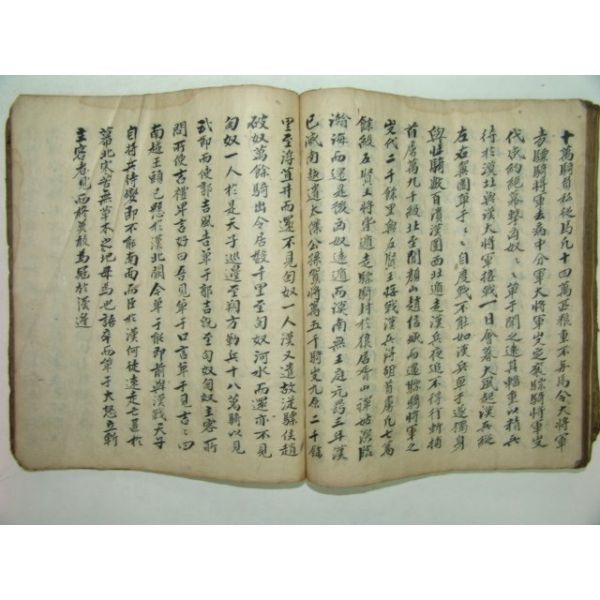 十萬騎負私從馬凡十四萬匹粮重不与焉令大將軍
青驃騎將軍去病中分軍大將軍出定襄驃騎將軍出
代咸約絕幕擊匈奴〻單于聞之遠其輜重以精兵
待於漠北與漢大將軍接戰一日會暮大風起漢兵縱
左右翼圍單于〻〻自度戰不能如漢兵單于遂獨身
與壯騎數百潰漢圍西北遁走漢兵夜追不得行斬捕
首虜萬九千級北至闐顏山趙信城而還驃騎將軍之
出代二千餘里與左賢王接戰漢兵得胡首虜凡七萬
餘級左賢王將皆遁走驃騎封於狼居胥山禪姑衍臨
瀚海而還是後匈奴遠遁而漠南無王庭元鼎三年漢
已滅南越遣太僕公孫賀將萬五千騎出九原二千餘
里至浮苴井而還不見匈奴一人漢又遣故從驃侯趙
破奴萬餘騎出令居數千里至匈奴河水而還亦不見
匈奴一人於是天子巡邊至朔方勒兵十八萬騎以見
武節而使郭吉風告單于郭吉旣至匈奴匈奴主客所
問所使吉禮卑言好曰吾見單于口言單于見吉〻曰
南越王頭已懸於漢北闕今單于能卽前與漢戰天子
自將兵待邊卽不能南面而臣於漢何徒遠走亡匿於
幕北寒苦無草木之地毋爲也語卒而單于大怒立斬
主客者見而終莫敢爲寇於漢邊